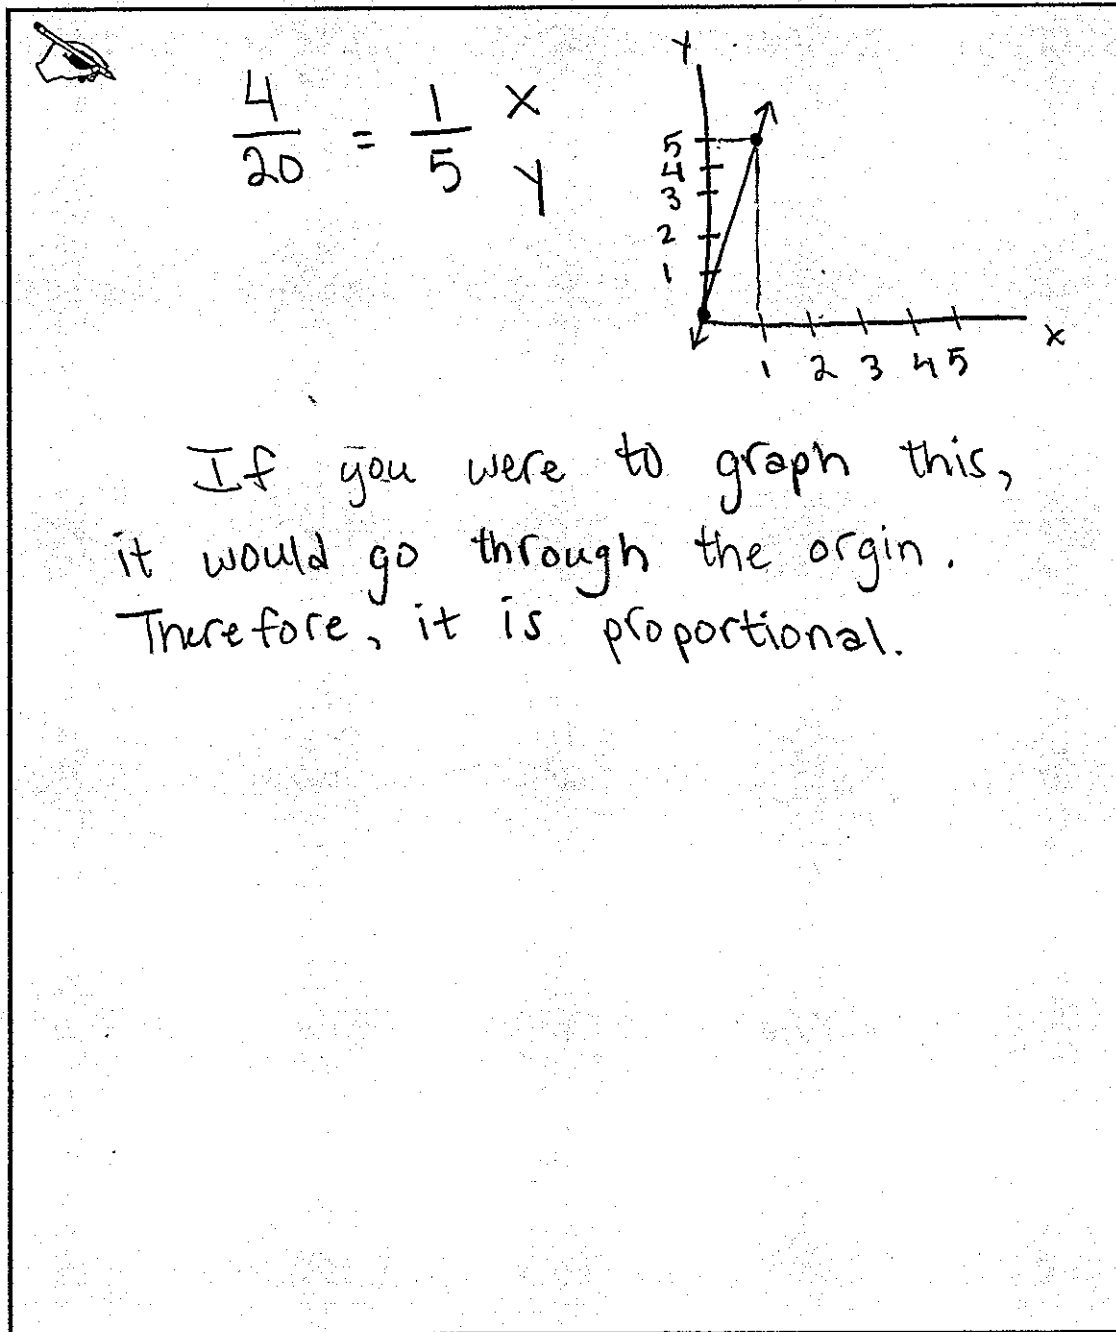 4/20 = 1/5 x y
y
5
4
3
2
1
1 2 3 4 5 x
If you were to graph this,
it would go through the orgin.
Therefore, it is proportional.